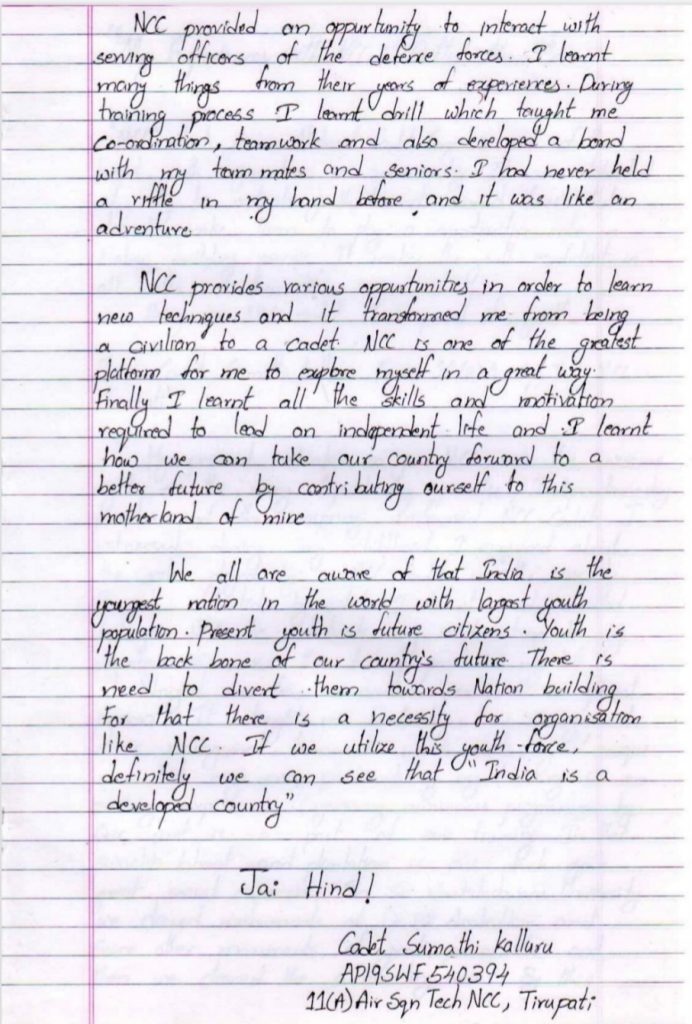 NCC provided an oppurtunity to interact with
serving officers of the defence forces. I learnt
many things from their years of experiences. During
training process I learnt drill which taught me
Co-ordination, teamwork and also developed a bond
with my team mates and seniors. I had never held
a riffle in my hand before and it was like an
adventure.
NCC provides various oppurtunities in order to learn
new techniques and it transformed me from being
a civilian to a cadet. NCC is one of the greatest
platform for me to explore myself in a great way.
Finally I learnt all the skills and motivation
required to lead an independent life and I learnt
how we can take our country forward to a
better future by contributing ourself to this
motherland of mine
We all are aware of that India is the
youngest nation in the world with largest youth
population. Present youth is future citizens. Youth is
the back bone of our country's future There is
need to divert them towards Nation building
For that there is a necessity for organisation
like NCC. If we utilize this youth-force,
definitely we can see that "India is a
developed country"
Jai Hind!
Cadet Sumathi Kalluru
AP19SWF540394
11(A) Air Sqn Tech NCC, Tirupati